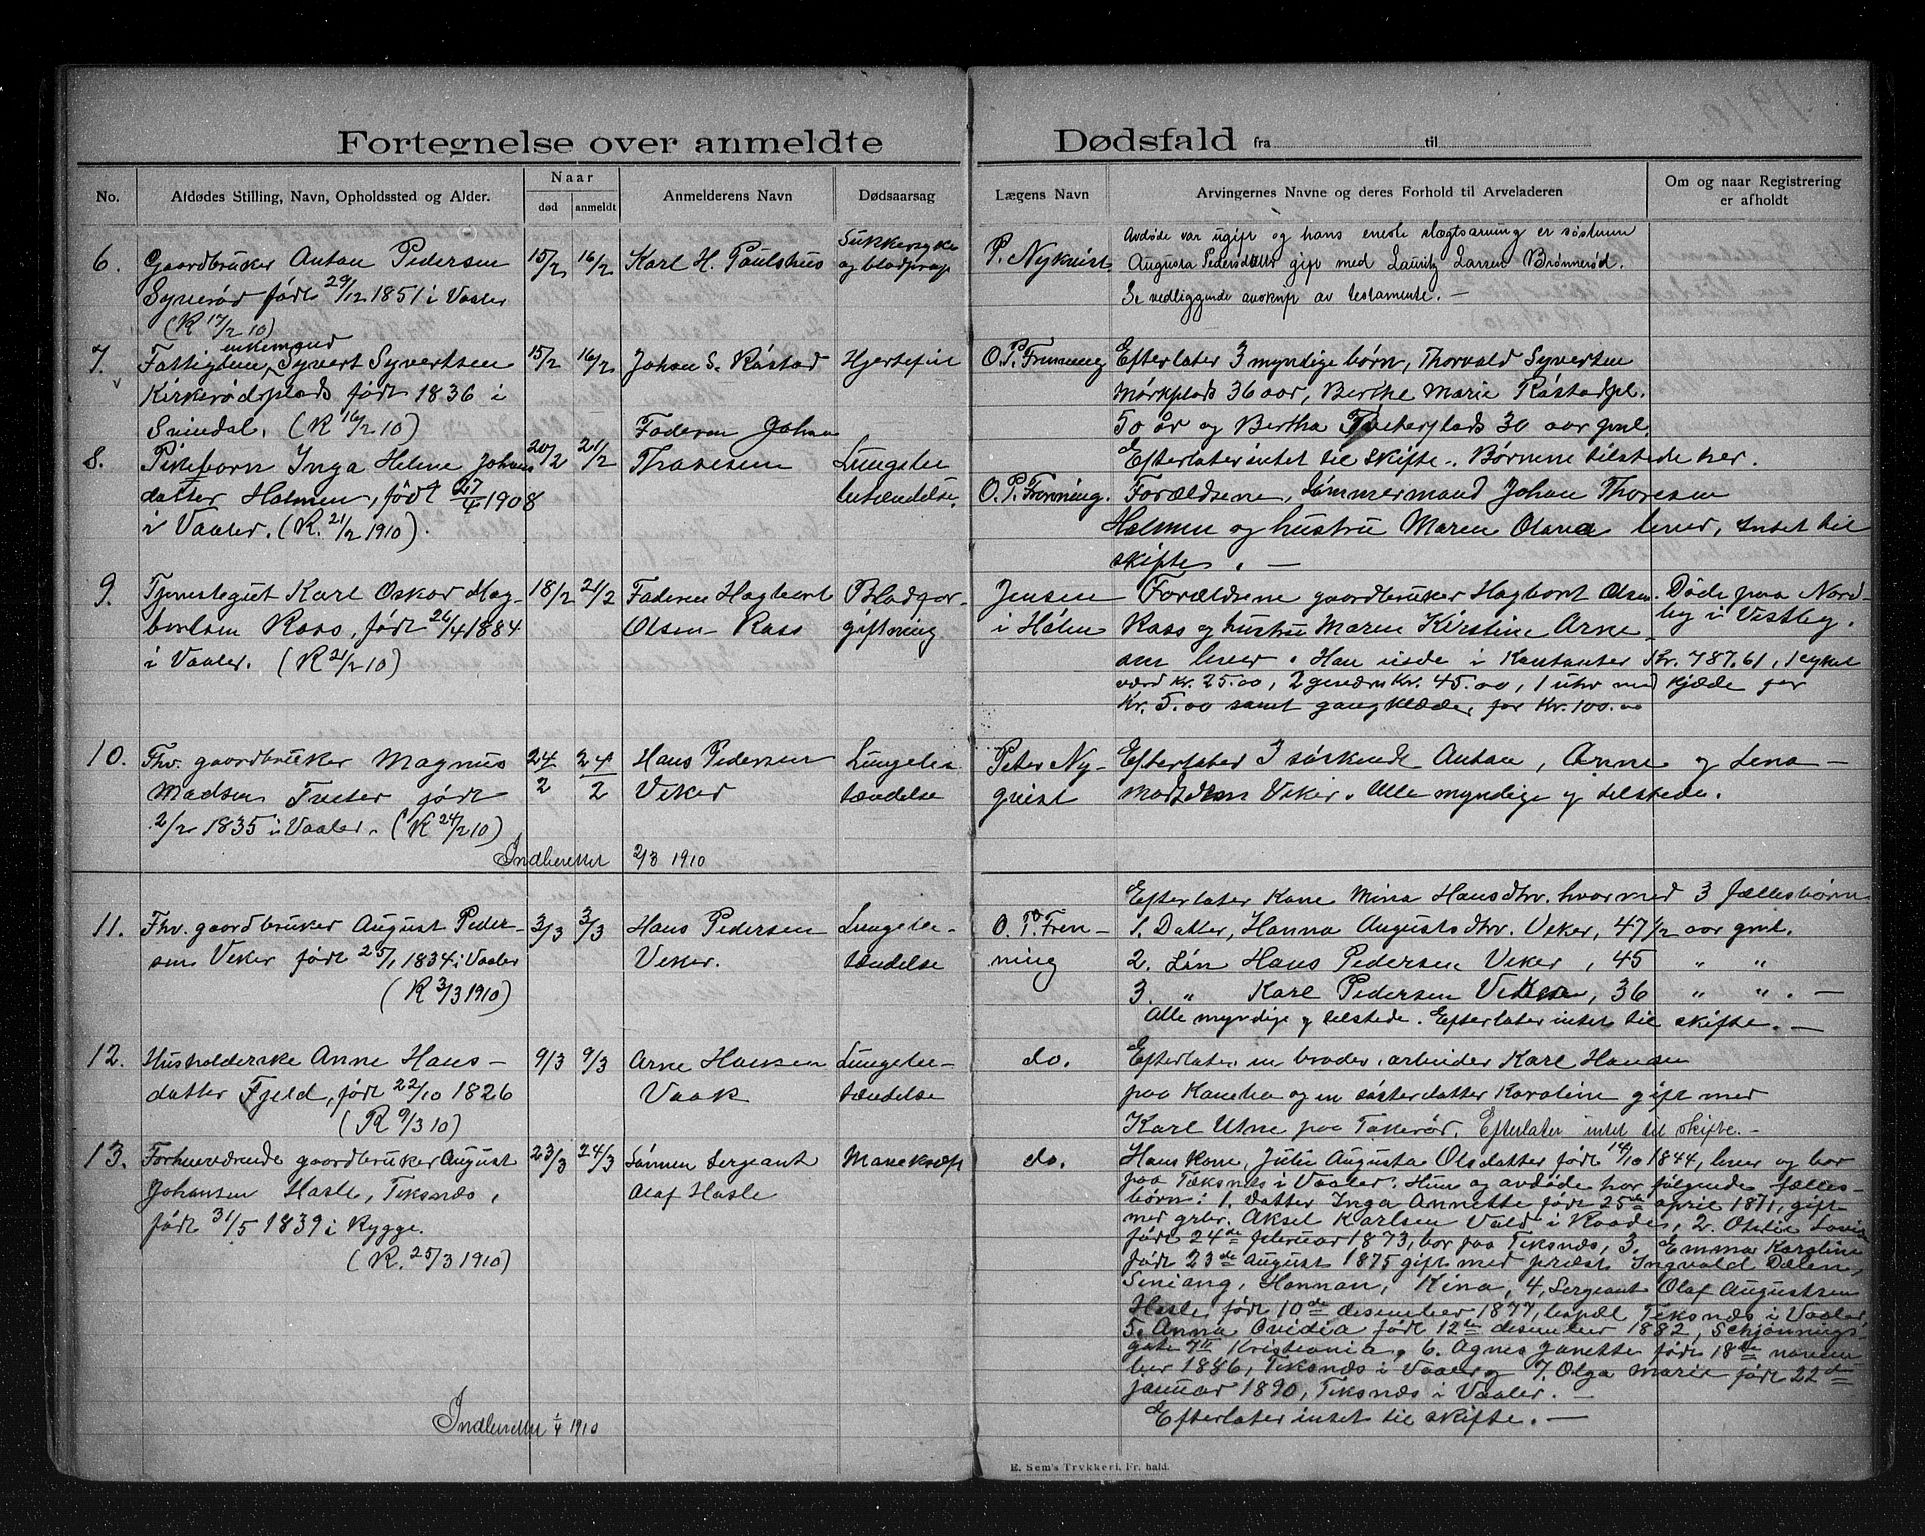 1910.
Fortegnelse over anmeldte Dødsfald fra til
No.
Afdødes Stilling, Navn, Opholdssted og Alder.
Naar
død
anmeldt
Anmelderens Navn
Dødsaarsag
Lægens Navn
Arvingernes Navne og deres Forhold til Arveladeren
Om og naar Registrering
er afholdt
6.
Gaardbruker Anton Pedersen
Synerød født 29/12 1851 i Vaaler
(R 17/2 10)
15/2
16/2
Karl H. Paulshus
Sukkersyke
og blodprop
P. Nykvist
Avdøde var ugift og hans eneste slegtsarving er søsteren
Augusta Pedersdatter gift med Lauritz Larsen Brønnerød.
Se vedliggende avskrift av testamente. —
7.
enkemand
Fattiglem, Syvert Syvertsen
Kirkerødsplads født 1836 i
Svindal. (R 16/2 10)
15/2
16/2
Johan S. Råstad
Hjertefeil
O. P. Frenning
Efterlater 3 myndige børn, Thorvald Syvertsen
Mørkplads 36 aar, Berthe Marie Råstadpl.
50 år og Bertha Tveterplads 30 aar gml.
Efterlater intet til skifte. Børnene tilstede her.
8.
Pikebarn Inga Helene Johans
datter Holmen, født 27/4 1908
i Vaaler. (R. 21/2 1910).
20/2
21/2
Faderen Johan
Thoresen
Lungebe
tændelse.
O. P. Frenning.
Forældrene, Tømmermand Johan Thoresen
Holmen og hustru Maren Olava lever, intet til
skifte. —
9.
Tjenestegut Karl Oskar Hag-
bartsen Ross, født 26/4 1884
i Vaaler. (R 21/2 10)
18/2
21/2
Faderen Hagbart
Olsen Ross
Blodfor-
giftning
Jensen
i Hølen
Forældrene gaardbruker Hagbart Olsen
Ross og hustru Maren Kirstine Arne-
sen lever. Han eiede i Kontanter Kr. 787.61, 1 cykel
værd Kr. 25.00, 2 geværer Kr. 45.00, 1 uhr med kjæde for
Kr. 5.00 samt gangklæder for Kr. 100.00
Døde paa Nord-
by i Vestby.
10.
Fhv. gaardbruker Magnus
Madsen Tveter født
2/2 1835 i Vaaler. (R 24/2 10)
24/2
24/2
Hans Pedersen
Veker
Lungebe
tændelse
Peter Ny-
qvist
Efterlater 3 søskende Anton, Anne og Lena —
Madsen Veker. Alle myndige og tilstede.
Indberettet 2/3 1910
11.
Fhv. gaardbruker August Peder-
sen Veker født 25/1 1834 i Vaaler
(R 3/3 1910)
3/3
3/3
Hans Pedersen
Veker.
Lungebe-
tændelse
O. P. Fren-
ning
Efterlater Kone Mina Hansdtr. hvormed 3 fællesbørn
1. Datter, Hanna Augustsdtr. Veker, 47 1/2 aar gml.
2. Søn Hans Pedersen Veker, 45 " "
3. " Karl Pedersen Veker, 36 " ". —
Alle myndige og tilstede. Efterlater intet til skifte. —
12.
Husholderske Anne Hans-
datter Fjeld, født 22/10 1826
(R 9/3 10)
9/3
9/3
Arne Hansen
Vaak
Lungebe-
tændelse
do.
Efterlater en broder, arbeider Karl Hansen
paa Kambo og en søsterdatter Karoline gift med
Karl Utne paa Takerød. Efterlater intet til skifte. —
13.
Forhenværende gaardbruker August
Johansen Hasle, Teksnæs,
født 31/5 1839 i Rygge.
(R. 25/3 1910)
23/3
24/3
Sønnen Sergeant
Olaf Hasle
Mavekræft
do.
Hans Kone, Julie Augusta Olsdatter født 14/10 1844, lever og bor
paa Teksnæs i Vaaler. Hun og avdøde har følgende fælles-
børn: 1. Datter Inga Annette født 25de april 1871, gift
med grbr. Aksel Karlsen Vold i Raade, 2. Othilie Lovise
født 24de februar 1873, bor paa Teksnæs, 3. Emma Karoline
født 23de August 1875 gift med prest Ingvald Dælen,
Siniang, Honnan, Kina, 4, Sergeant Olaf Augustsen
Hasle, født 10de desember 1877, bopæl Teksnæs i Vaaler,
5. Anna Ovidia født 12te desember 1882, Schjønnings-
gate 7II Kristiania, 6. Agnes Janette født 18de novem
ber 1886, Teksnæs i Vaaler og 7. Olga Marie født 22de
januar 1890, Teksnæs i Vaaler. —
Efterlater intet til skifte. —
Indberettet 1/4 1910
E. Sem's Trykkeri, Fr. hald.